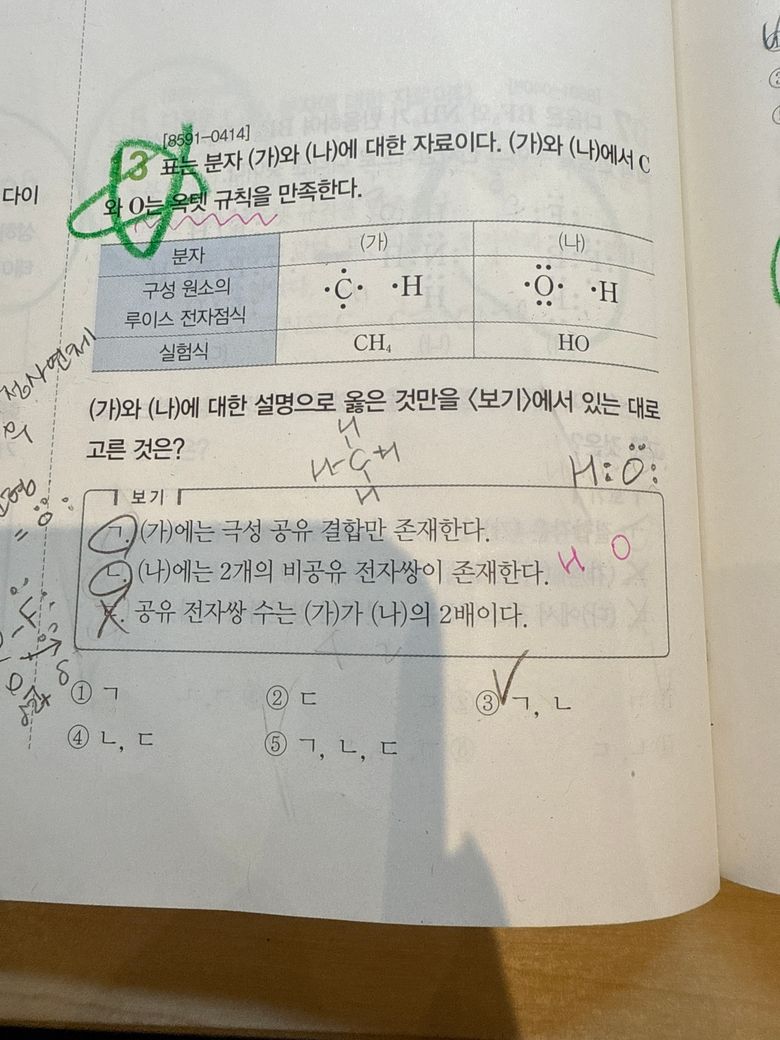 [8591-0414]
13 표는 분자 (가)와 (나)에 대한 자료이다. (가)와 (나)에서 C
와 O는 옥텟 규칙을 만족한다.
분자 (가) (나)
구성 원소의
루이스 전자점식 ·C· ·H ·O· ·H
실험식 CH₄ HO
(가)와 (나)에 대한 설명으로 옳은 것만을 〈보기〉에서 있는 대로
고른 것은?
H
H-C-H
H
H:O:
보기
ㄱ. (가)에는 극성 공유 결합만 존재한다.
ㄴ. (나)에는 2개의 비공유 전자쌍이 존재한다.
H O
ㄷ. 공유 전자쌍 수는 (가)가 (나)의 2배이다.
① ㄱ ② ㄷ ③ ㄱ, ㄴ
④ ㄴ, ㄷ ⑤ ㄱ, ㄴ, ㄷ
다이